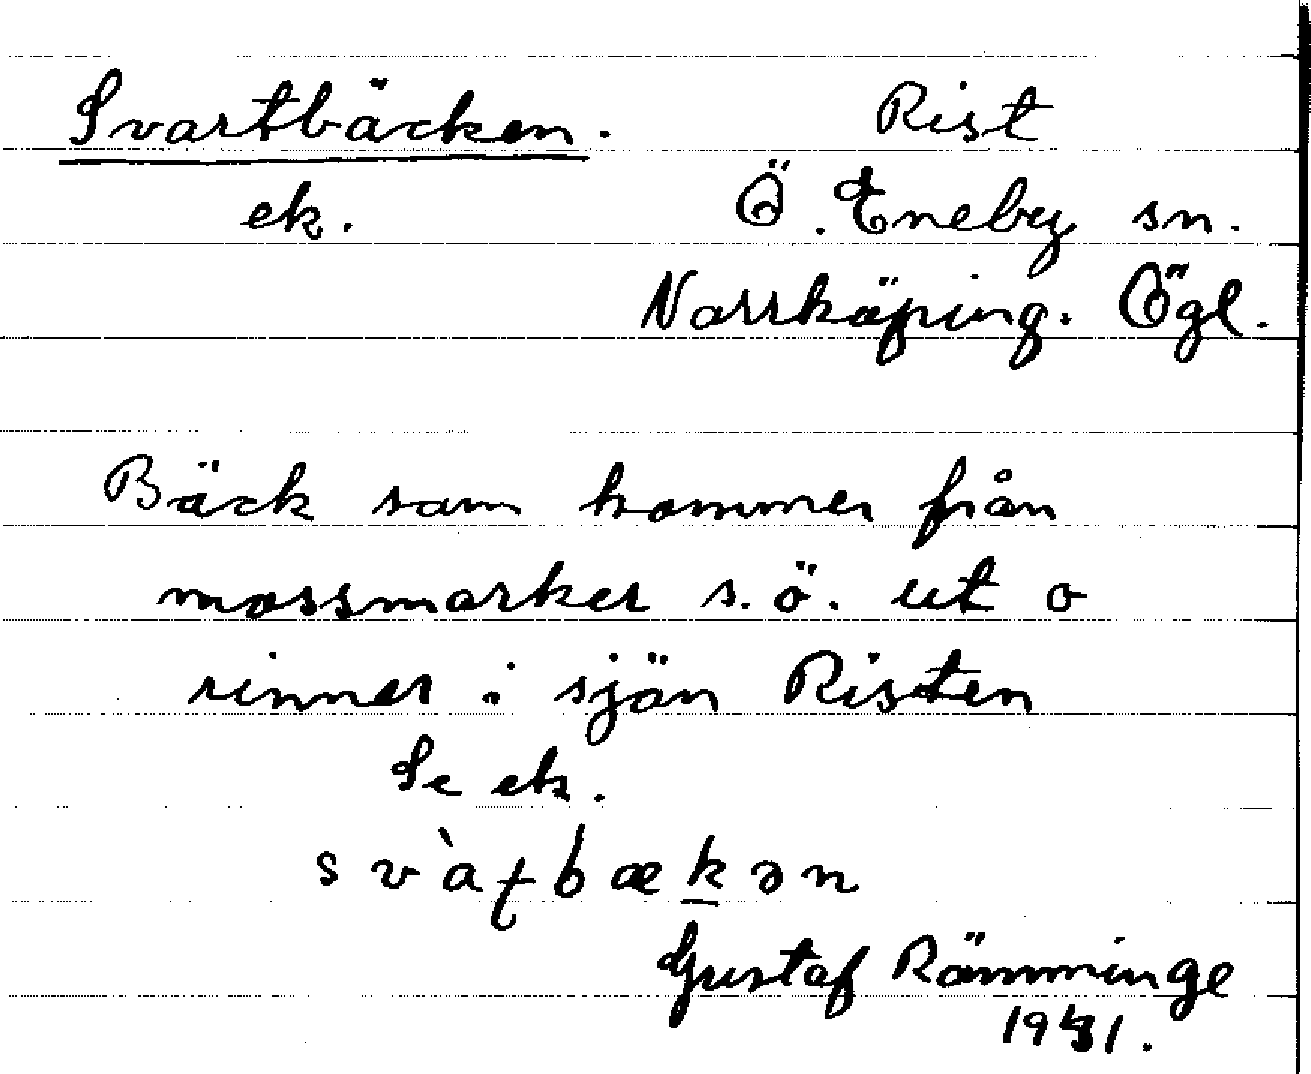 Svartbäcken. Rist
ek. Ö. Eneby sn.
Norrköping. Ögl.
Bäck som kommer från
mossmarker s.ö. ut o
rinner i sjön Risten
Se ek.
svàʈbækən
Gustaf Römminge